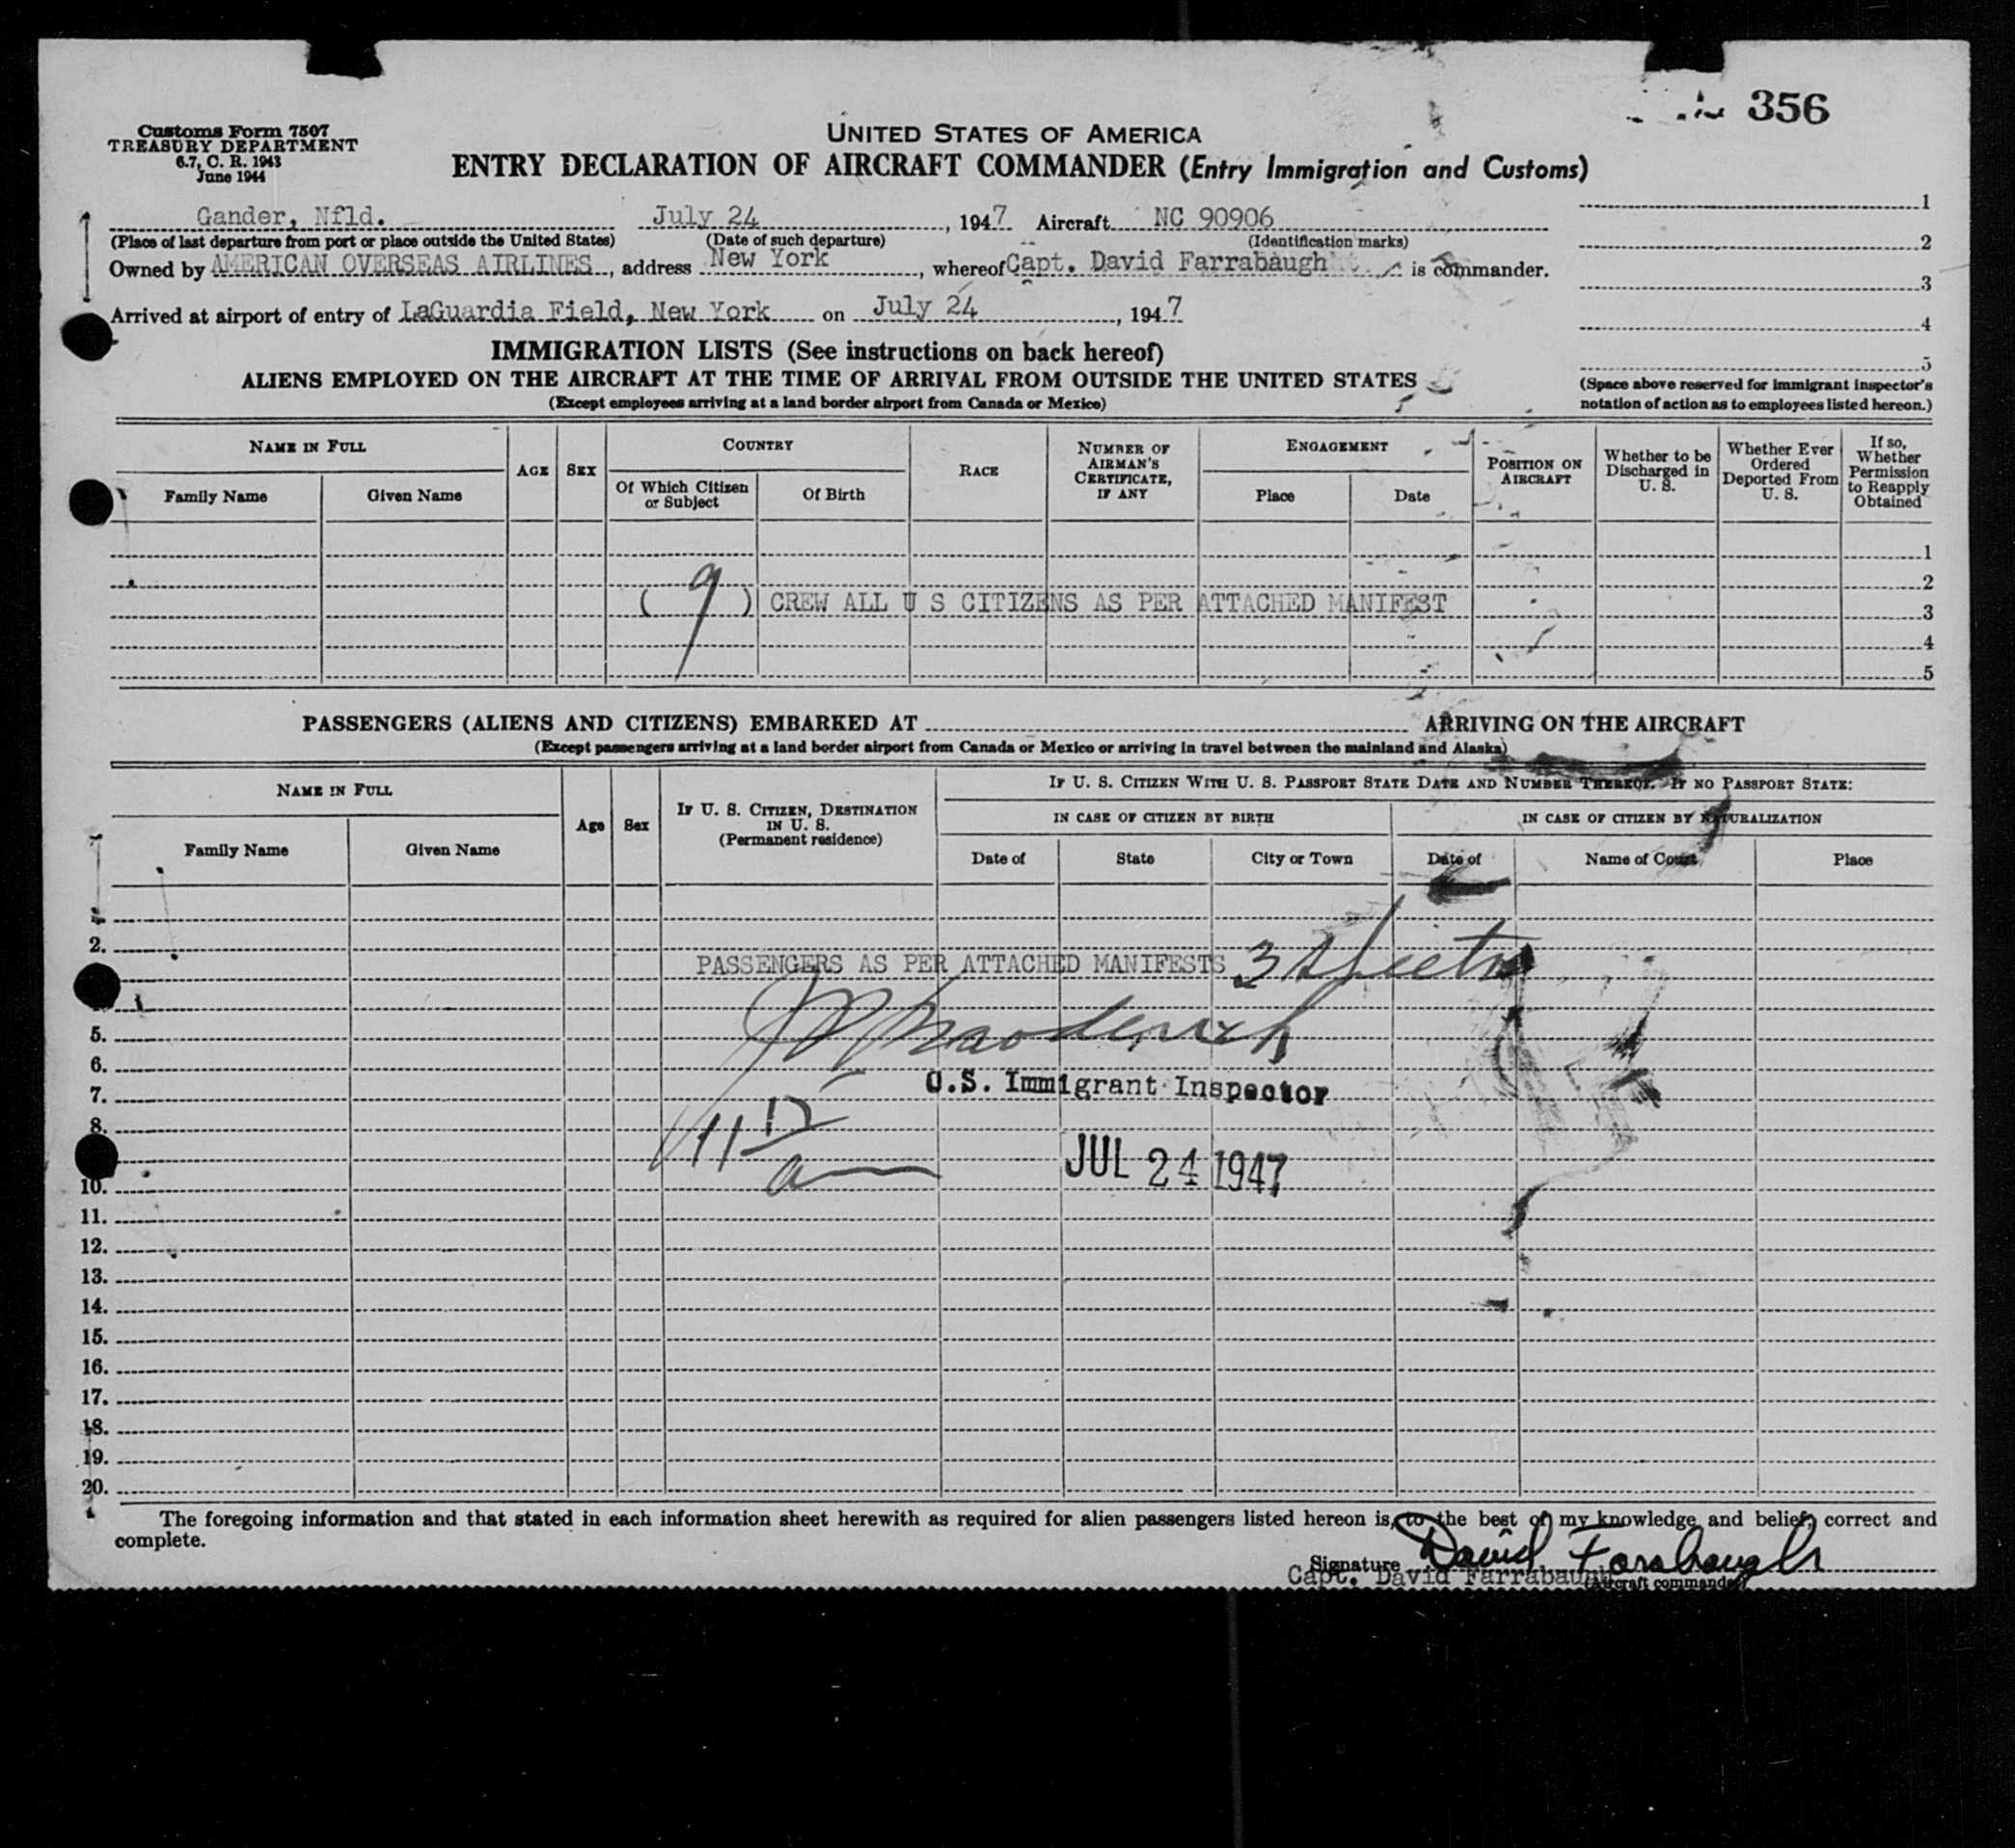 356
Customs Form 7507
TREASURY DEPARTMENT
6.7, C. R. 1943
June 1944
UNITED STATES OF AMERICA
ENTRY DECLARATION OF AIRCRAFT COMMANDER (Entry Immigration and Customs)
Gander, Nfld. July 24, 1947 Aircraft NC 90906
(Place of last departure from port or place outside the United States) (Date of such departure) (Identification marks)
Owned by AMERICAN OVERSEAS AIRLINES, address New York, whereof Capt. David Farrabaugh is commander.
Arrived at airport of entry of LaGuardia Field, New York on July 24, 1947
1
2
3
4
5
(Space above reserved for immigrant inspector's
notation of action as to employees listed hereon.)
IMMIGRATION LISTS (See instructions on back hereof)
ALIENS EMPLOYED ON THE AIRCRAFT AT THE TIME OF ARRIVAL FROM OUTSIDE THE UNITED STATES
(Except employees arriving at a land border airport from Canada or Mexico)
NAME IN FULL
Family Name Given Name
AGE SEX
COUNTRY
Of Which Citizen or Subject Of Birth
RACE
NUMBER OF AIRMAN'S CERTIFICATE, IF ANY
ENGAGEMENT
Place Date
POSITION ON AIRCRAFT
Whether to be Discharged in U. S.
Whether Ever Ordered Deported From U. S.
If so, Whether Permission to Reapply Obtained
1
2
( 9 ) CREW ALL U S CITIZENS AS PER ATTACHED MANIFEST 3
4
5
PASSENGERS (ALIENS AND CITIZENS) EMBARKED AT ARRIVING ON THE AIRCRAFT
(Except passengers arriving at a land border airport from Canada or Mexico or arriving in travel between the mainland and Alaska)
NAME IN FULL
Family Name Given Name
Age Sex
IF U. S. CITIZEN, DESTINATION IN U. S.
(Permanent residence)
IF U. S. CITIZEN WITH U. S. PASSPORT STATE DATE AND NUMBER THEREOF. IF NO PASSPORT STATE:
IN CASE OF CITIZEN BY BIRTH IN CASE OF CITIZEN BY NATURALIZATION
Date of State City or Town Date of Name of Court Place
2.
PASSENGERS AS PER ATTACHED MANIFESTS 3 sheets
5.
6.
7. U.S. Immigrant Inspector
8. 11 15
a
JUL 24 1947
10.
11.
12.
13.
14.
15.
16.
17.
18.
19.
20.
The foregoing information and that stated in each information sheet herewith as required for alien passengers listed hereon is, to the best of my knowledge and belief, correct and
complete.
Signature David Farabaugh
Capt. David Farrabaugh
(Aircraft commander)